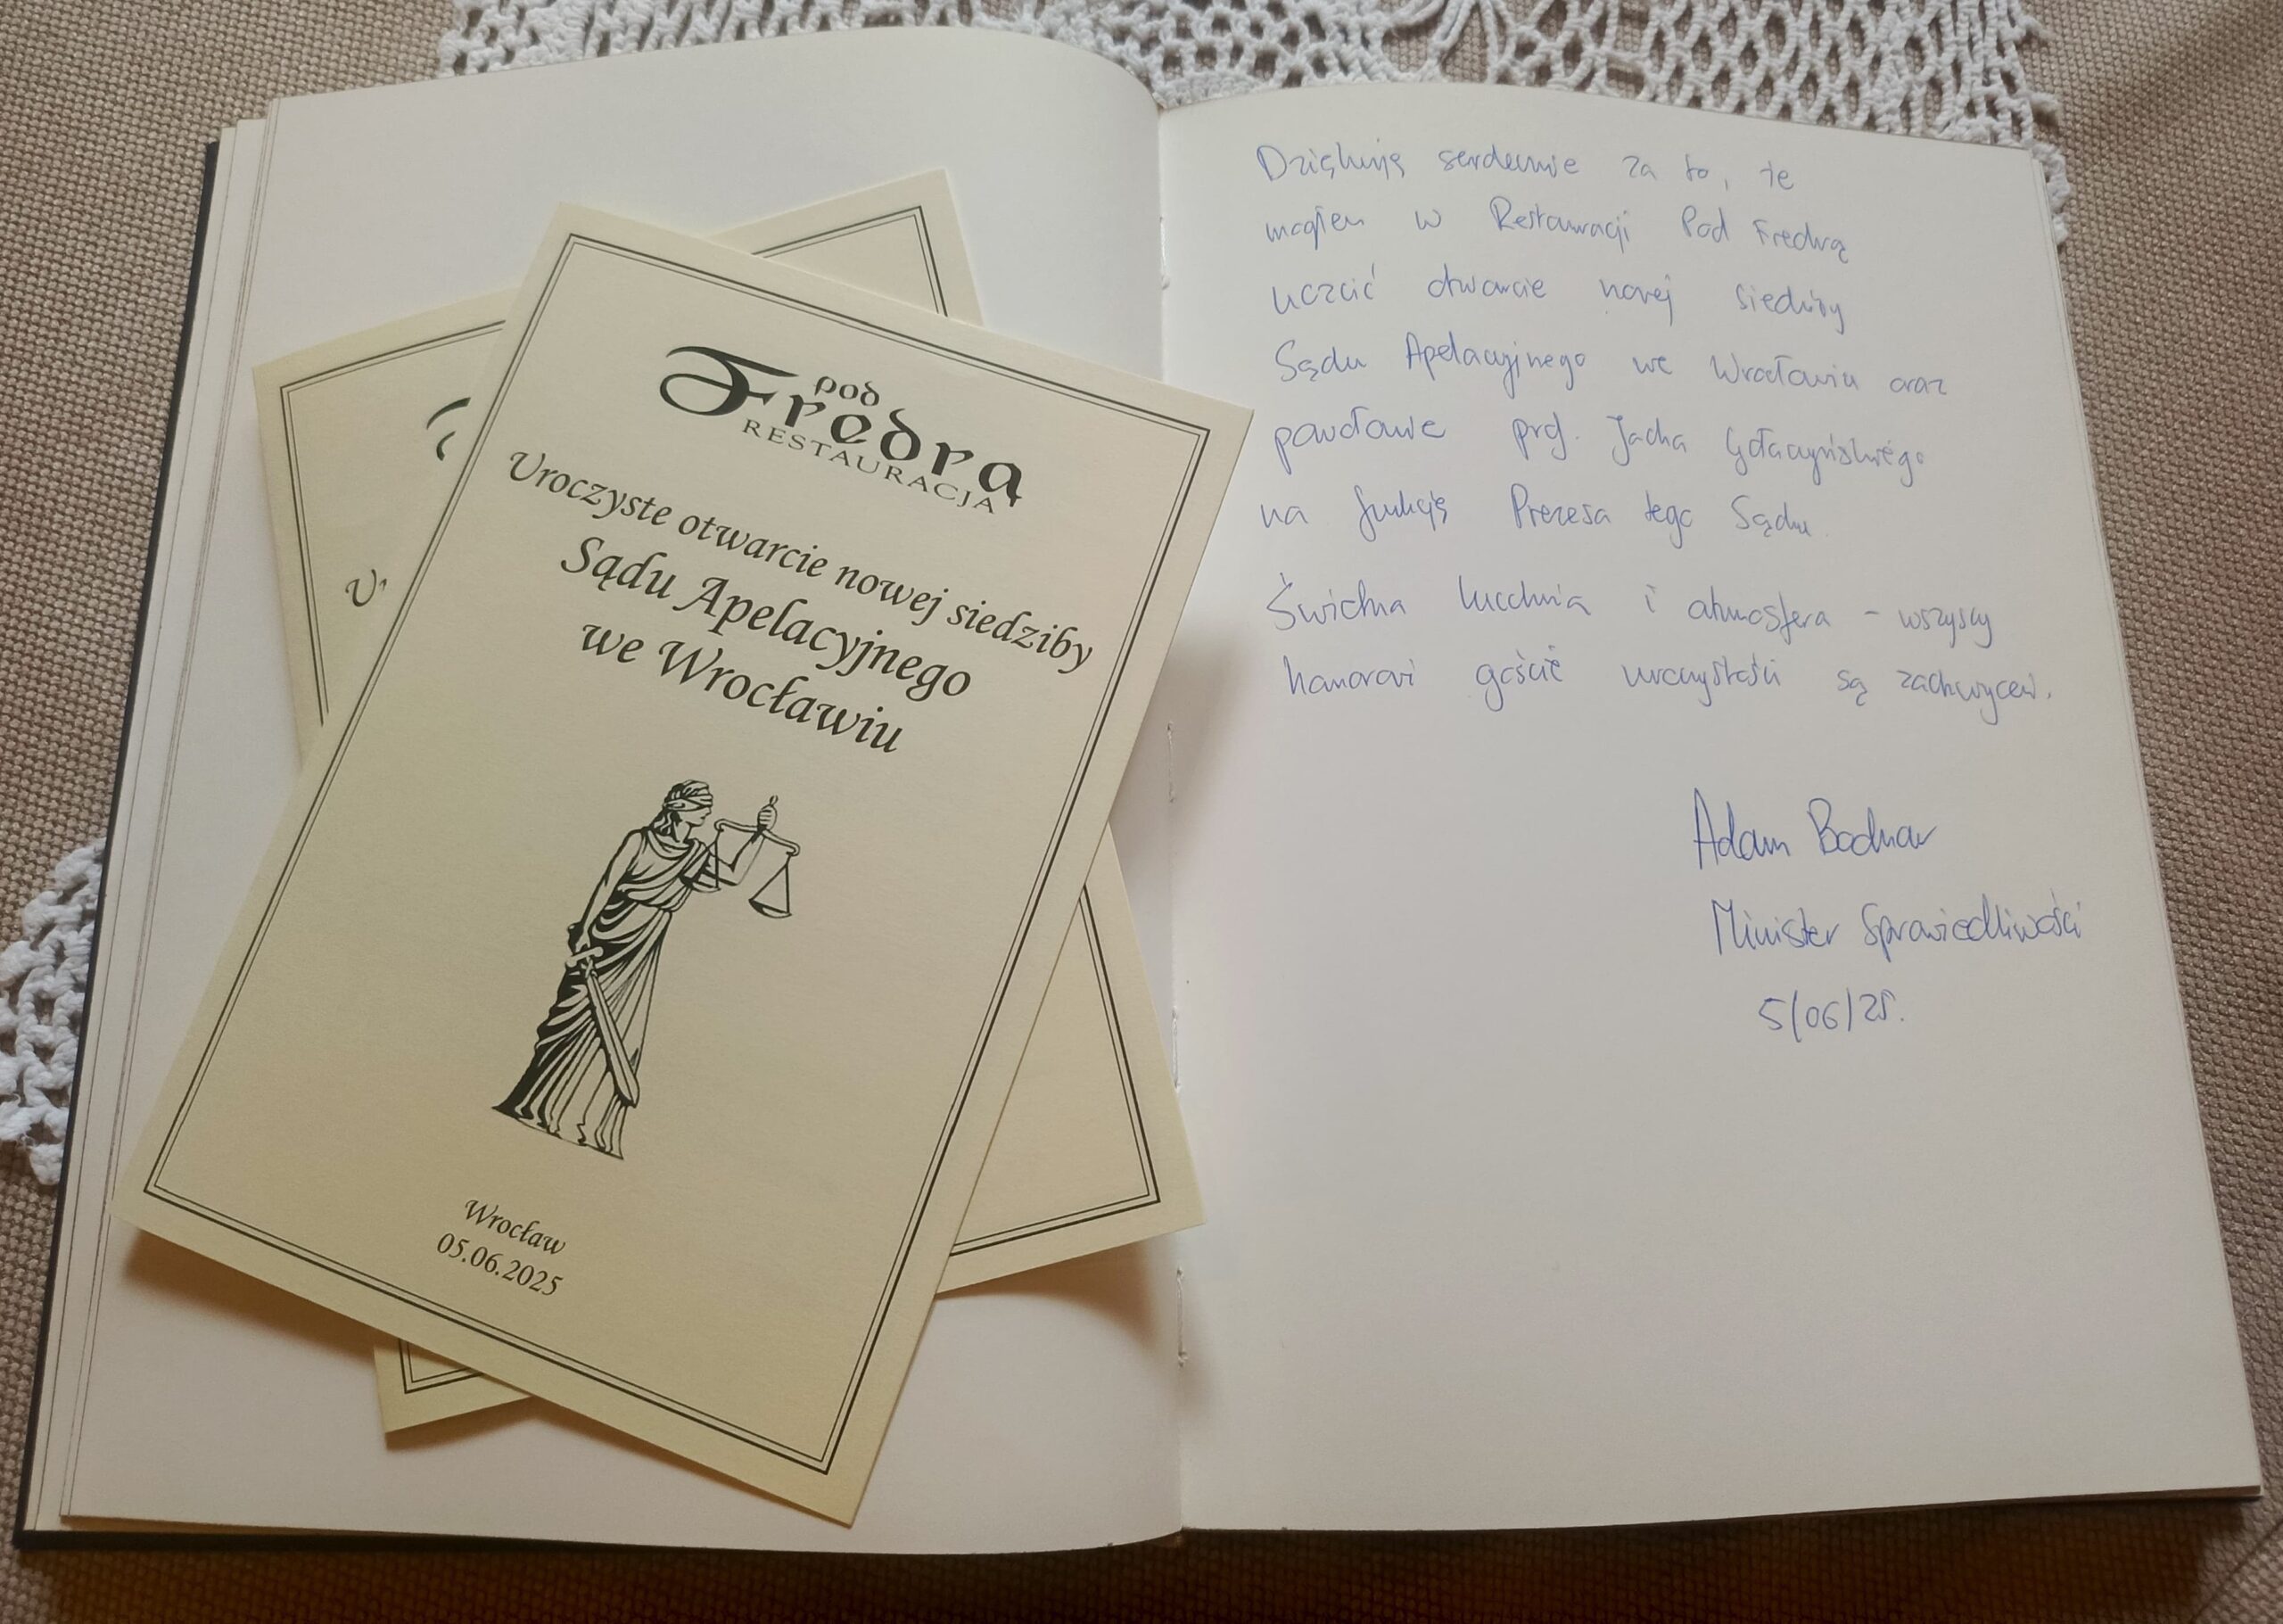 pod
Fredrą
RESTAURACJA
Uroczyste otwarcie nowej siedziby
Sądu Apelacyjnego
we Wrocławiu
Wrocław
05.06.2025
Dziękuję serdecznie za to, że
mogłem w Restauracji Pod Fredrą
uczcić otwarcie nowej siedziby
Sądu Apelacyjnego we Wrocławiu oraz
powołanie prof. Jacka Gołaczyńskiego
na funkcję Prezesa tego Sądu.
Świetna kuchnia i atmosfera – wszyscy
honorowi goście uroczystości są zachwyceni.
Adam Bodnar
Minister Sprawiedliwości
5/06/25.